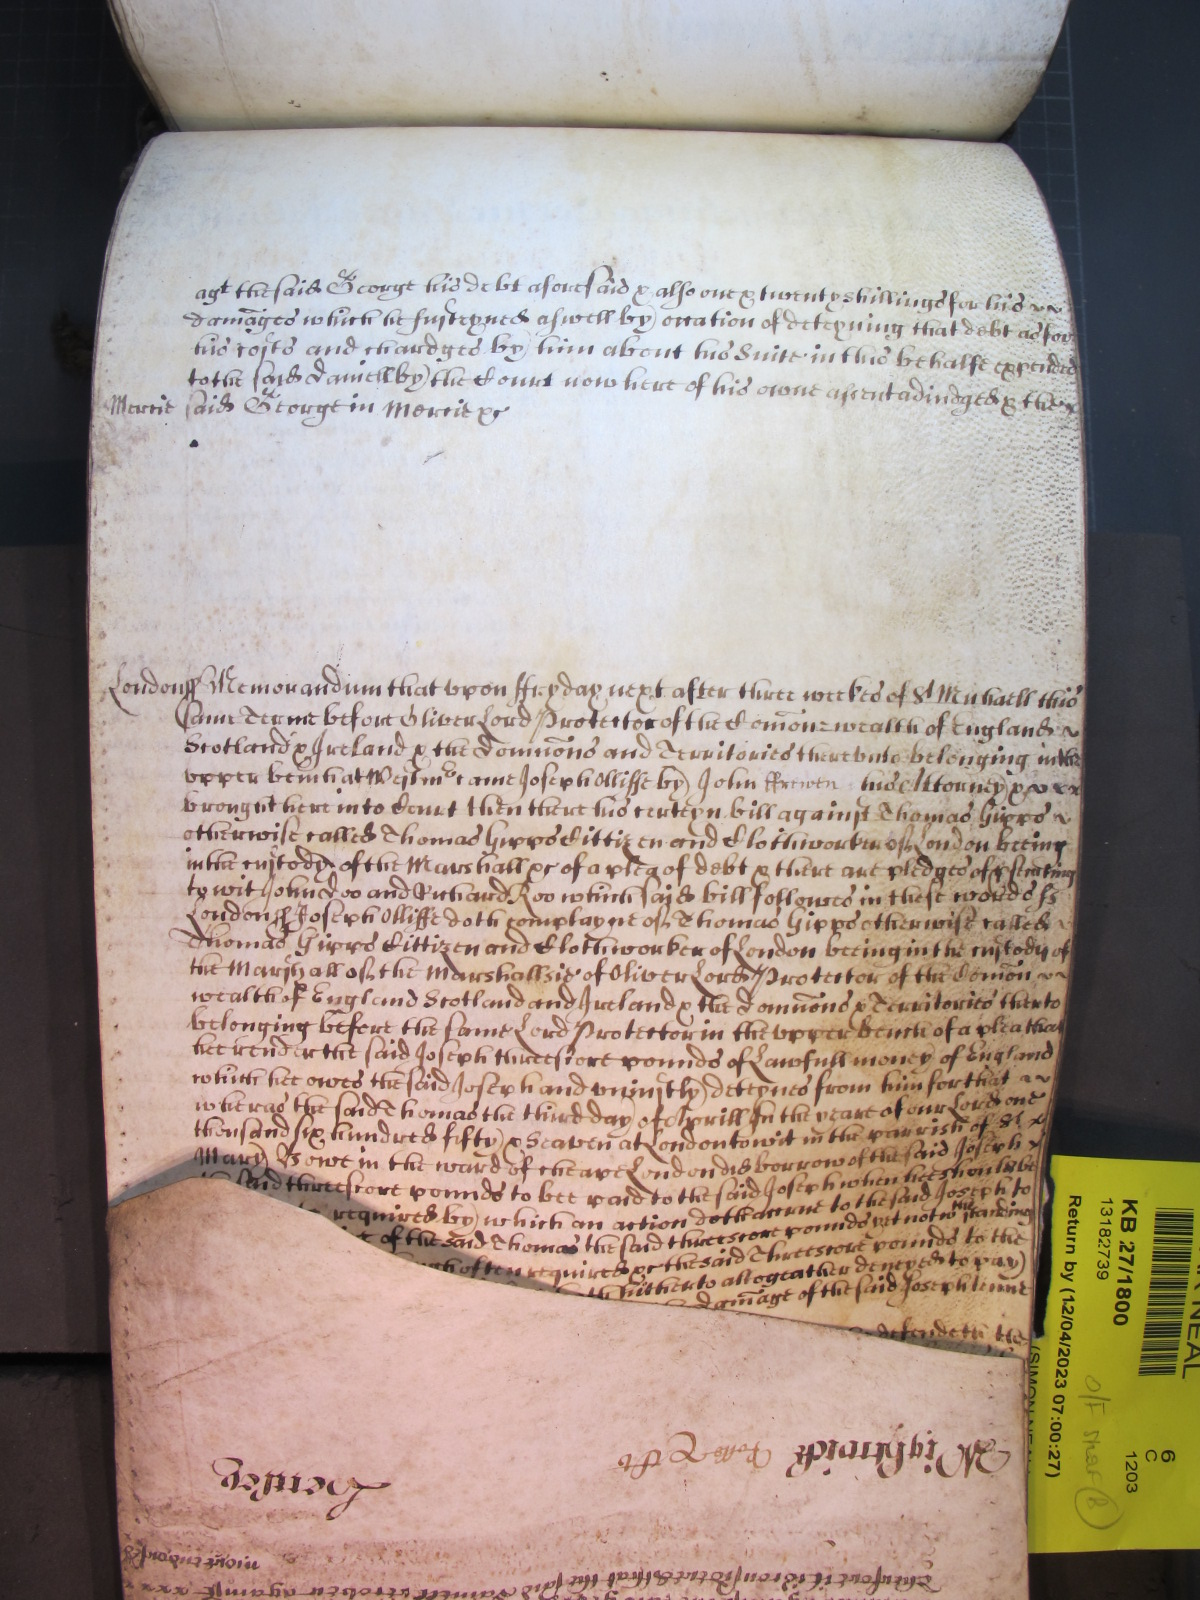 agt the said George his debt aforesaid & also one & twenty shillings for his
damages which he susteyned aswell by occation of deteyning that debt as for
his costs and chardges by him about his Suite in this behalfe expended
to the said Daniell by the Court now here of his owne assent adiudged & the
Mercie said George in Mercie &c
London ss Memorandum that vpon ffryday next after three weekes of St Michaell this
same Terme before Oliver Lord Protector of the Comonwealth of England
Scotland & Ireland & the Dominions and Territories thereunto belonging in the
vpper bench at Westmr came Joseph Olliffe by John ffrewen his Attorney &
brought here into Court then there his certeyn bill against Thomas Gipps
otherwise called Thomas Gipps Cittizen and Clothworker of London being
in the custody of the Marshall &c of a plea of debt & there are pledges of prosecuting
to wit John doo and Richard Roo which said bill followes in these words ss
London ss Joseph Olliffe doth complayne of Thomas Gipps otherwise called
Thomas Gipps Cittizen and Clothworker of London beeing in the custody of
the Marshall of the Marshallsie of Oliver Lord Protector of the Comon
wealth of England Scotland and Ireland & the Dominions & Territories therto
belonging before the same Lord Protector in the vpper bench of a plea that
hee render the said Joseph threescore pounds of Lawfull money of England
which hee owes the said Joseph and vniustly deteynes from him for that
wheras the said Thomas the third day of Aprill In the yeare of our Lord one
thousand six hundred fifty & Seaven at London to wit in the parrish of St
Mary Bowe in the ward of cheape London did borrow of the said Joseph
the said threescore pounds to bee paid to the said Joseph when hee should be
required by which an action doth acrue to the said Joseph to
of the said Thomas the said threescore pounds yet notwthstanding
often required &c the said Threescore pounds to the
hitherto altogeather denyed to pay
damage of the said Joseph tenne
defendeth the
Wightwick
KB 27/1800
13182739
Return by (12/04/2023 07:00:27)
(SIMON NEAL)
6
C
1203